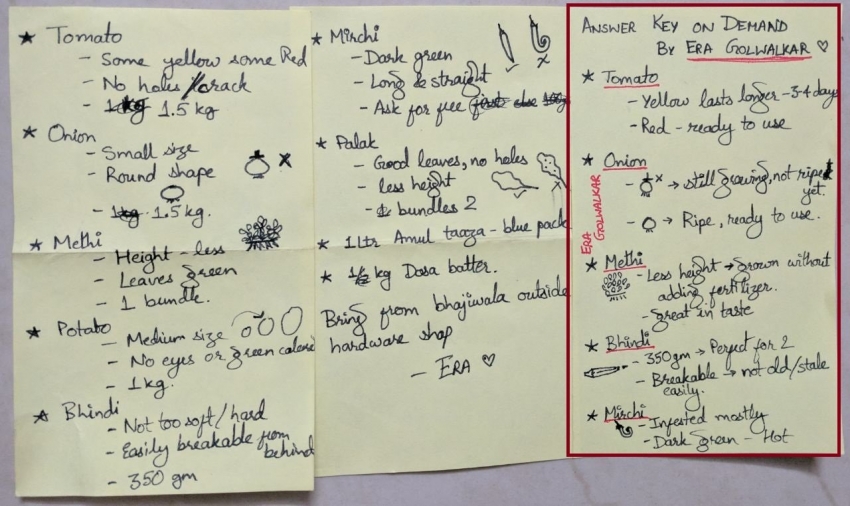 ★ Tomato
- Some yellow some Red
- No holes / crack
- 1.5 kg
★ Onion
- Small size
- Round shape
- 1kg 1.5 kg.
★ Methi
- Height - less
- Leaves green
- 1 bundle.
★ Potato
- Medium size
- No eyes or green
- 1kg.
★ Bhindi
- Not too soft / hard
- Easily breakable from
behind
- 350 gm
★ Mirchi
- Dark green
- Long & straight
- Ask for free
★ Palak
- Good leaves, no holes
- less height
- bundles 2
★ 1 Ltr Amul taaza - blue pack
★ 1/2 kg Dosa batter.
Bring from bhajiwala outside
hardware shop
- ERA ♡
ANSWER KEY ON DEMAND
BY ERA GOLWALKAR ♡
★ Tomato
- Yellow lasts longer - 3-4 days
- Red - ready to use
★ Onion
- x → still growing, not ripe
yet.
- → Ripe, ready to use.
ERA
GOLWALKAR
★ Methi
- Less height → grown without
adding fertilizer.
- Great in taste
★ Bhindi
- 350gm → Perfect for 2
- Breakable → not old/stale
easily.
★ Mirchi
- Infested mostly
- Dark green - Hot